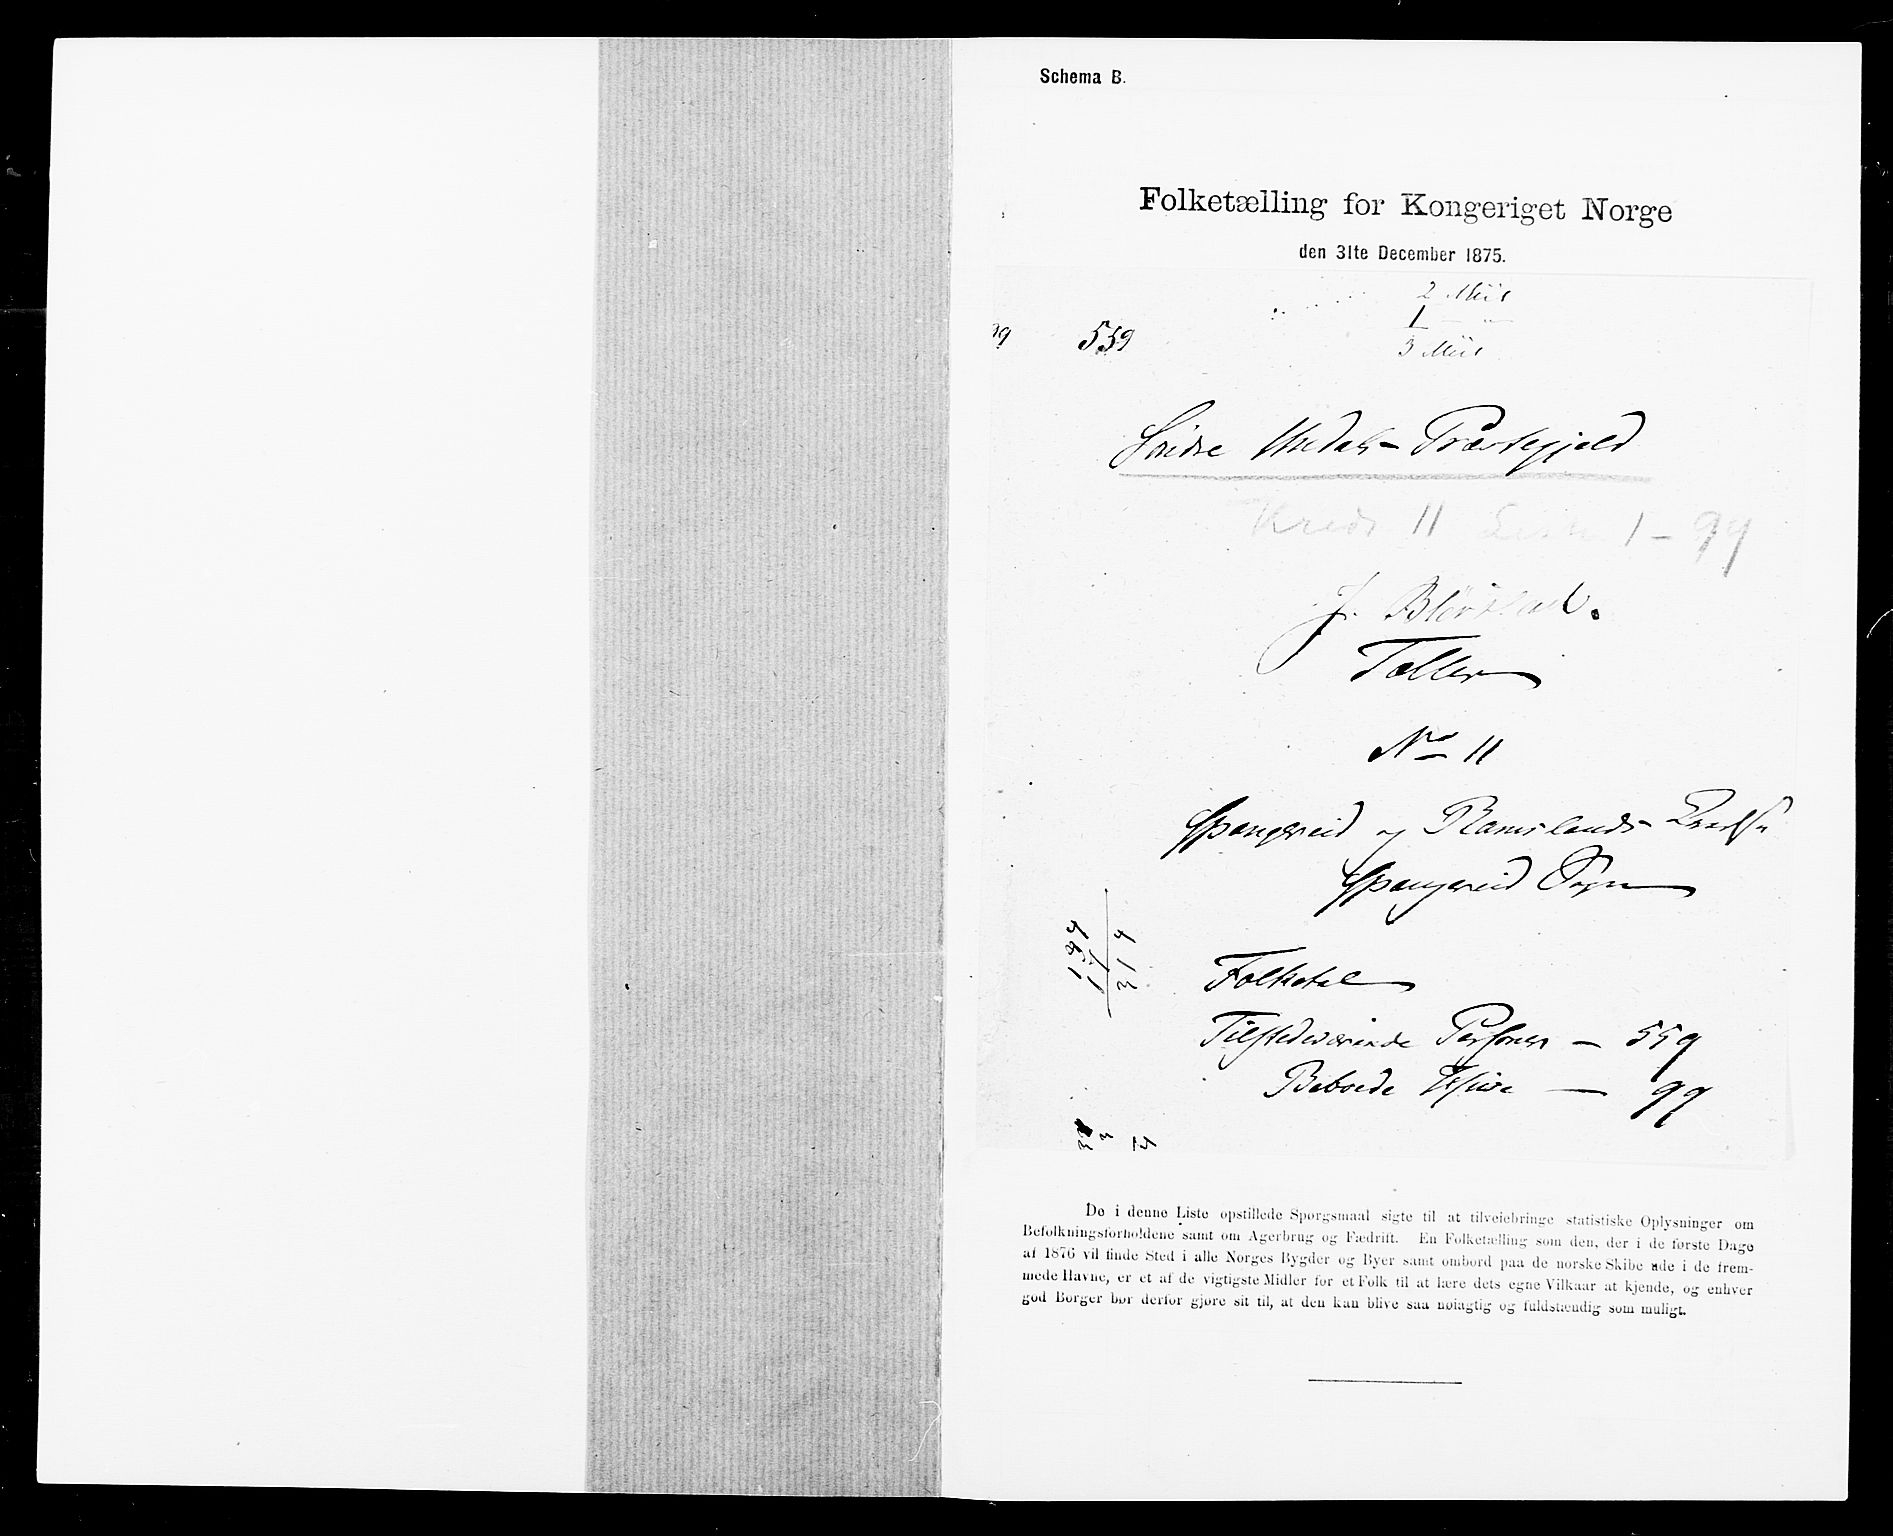 Schema B.
Folketælling for Kongeriget Norge
den 31te December 1875.
2 Miil
1 — "
3 Miil
99 559
Søndre Undals- Præstegjeld
Kreds 11 Liste 1 - 99
J.
Tæller
No 11
Spangereid og Ramslands-
Spangereid Sogn
199
314
Folketal
Tilstedeværende Personer — 559
Beboede Huse — 99
De i denne Liste opstillede Spørgsmaal sigte til at tilveiebringe statistiske Oplysninger om
Befolkningsforholdene samt om Agerbrug og Fædrift. En Folketælling som den, der i de første Dage
af 1876 vil finde Sted i alle Norges Bygder og Byer samt ombord paa de norske Skibe ude i de frem-
mede Havne, er et af de vigtigste Midler for et Folk til at lære dets egne Vilkaar at kjende, og enhver
god Borger bør derfor gjøre sit til, at den kan blive saa nøiagtig og fuldstændig som muligt.